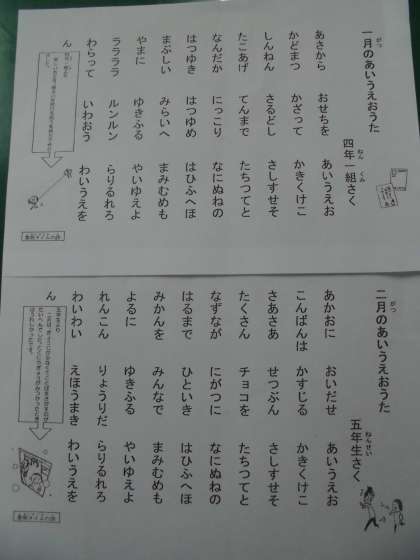 一月のあいうえおうた
四年一組さく
あさから おせちを あいうえお
かどまつ かざって かきくけこ
しんねん さるどし さしすせそ
たこあげ てんまで たちつてと
なんだか にっこり なにぬねの
はつゆき はつゆめ はひふへほ
まぶしい みらいへ まみむめも
やまに ゆきふる やいゆえよ
ララララ ルンルン らりるれろ
わらって いわおう わいうえを
ん
二月のあいうえおうた
五年生さく
あかおに おいだせ あいうえお
こんばんは かすじる かきくけこ
さあさあ せつぶん さしすせそ
たくさん チョコを たちつてと
なずなが にがつに なにぬねの
はるまで ひといき はひふへほ
みかんを みんなで まみむめも
よるに ゆきふる やいゆえよ
れんこん りょうりだ らりるれろ
わいわい えほうまき わいうえを
ん